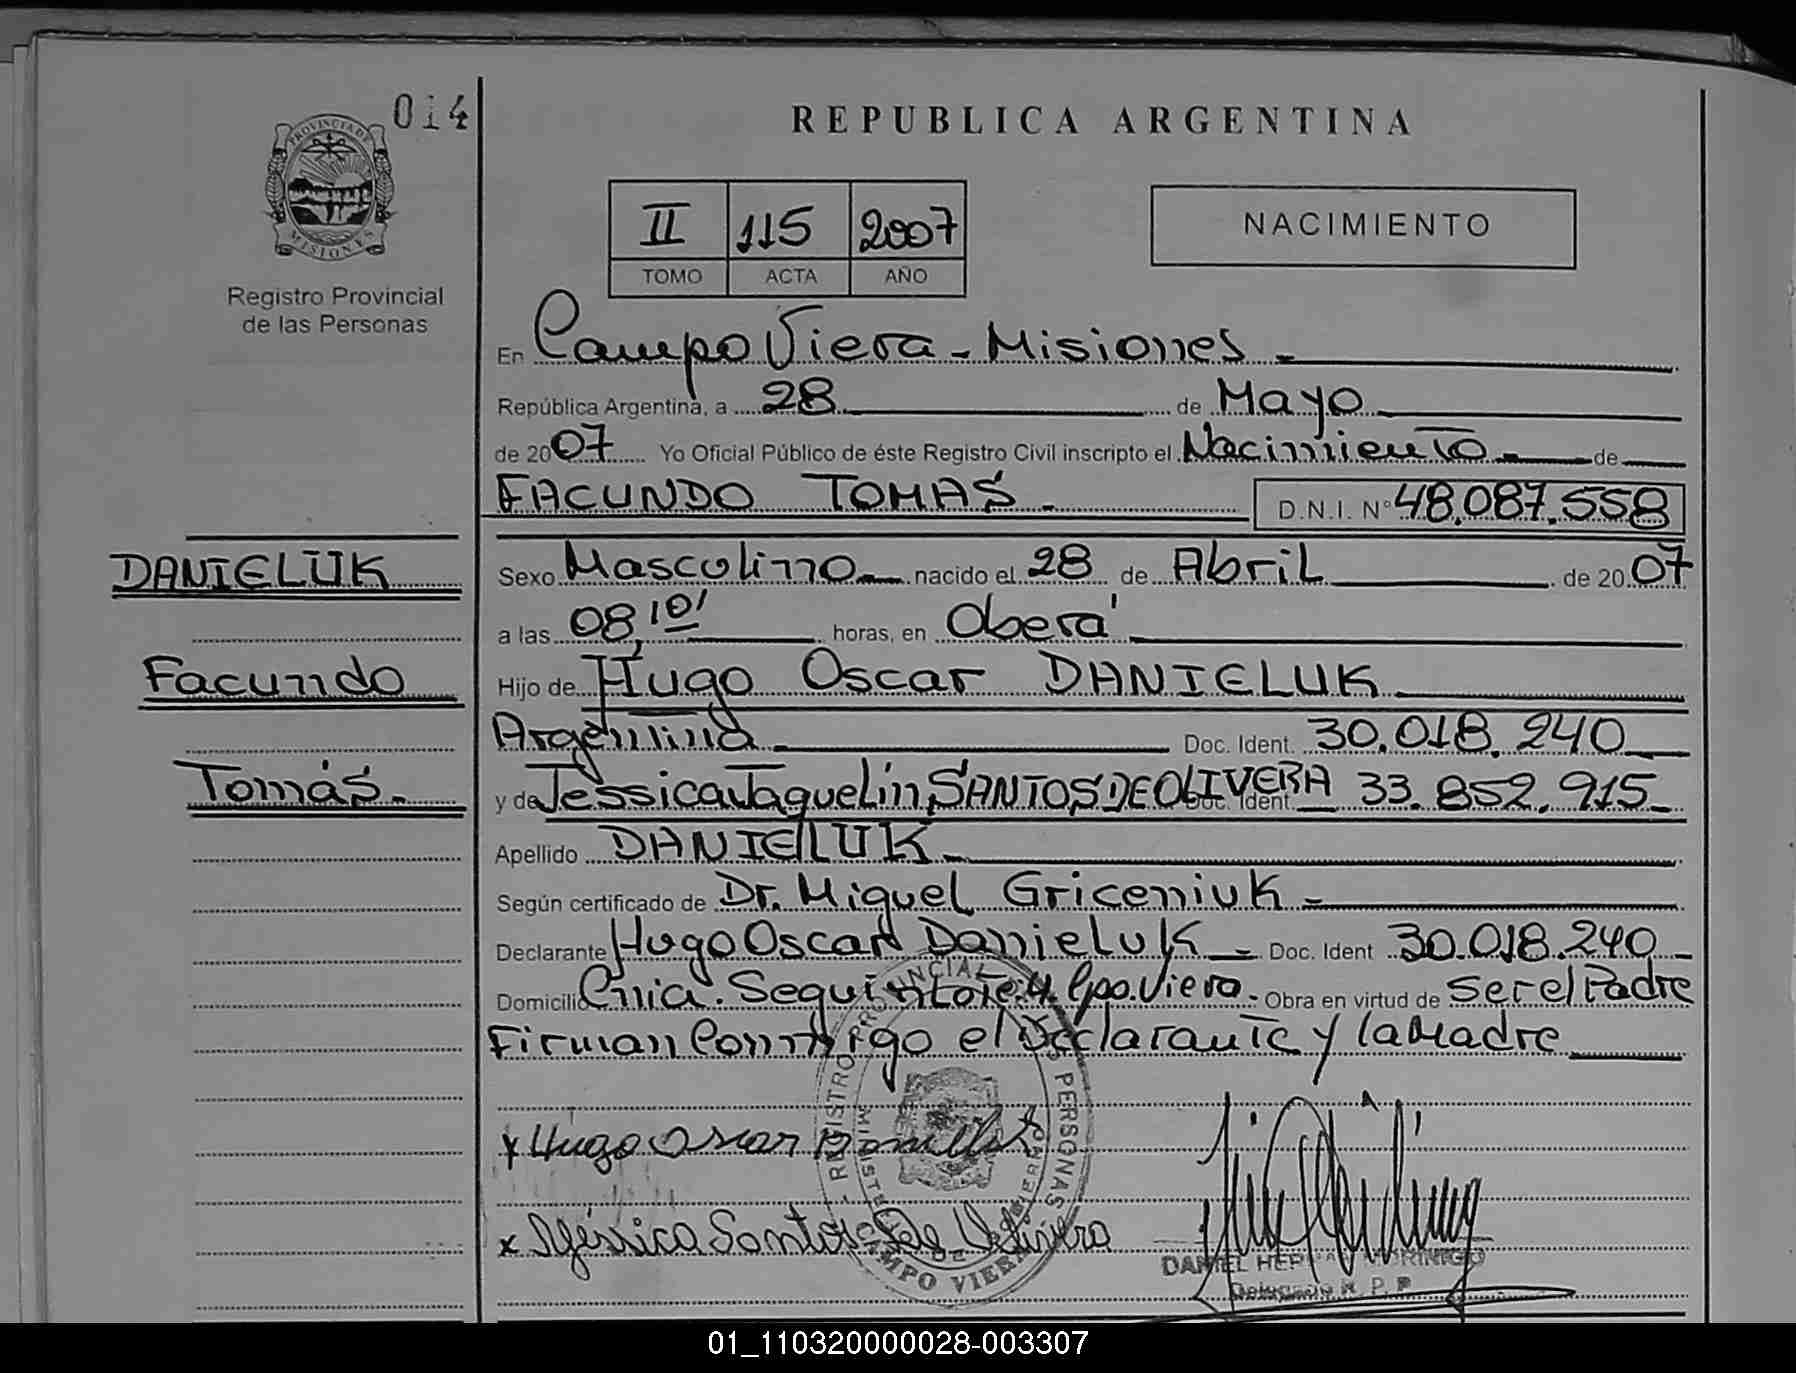 014
PROVINCIA DE
MISIONES
Registro Provincial
de las Personas
DANIELUK
Facundo
Tomás.-
REPUBLICA ARGENTINA
II 115 2007
TOMO ACTA AÑO
NACIMIENTO
En Campo Viera - Misiones -
República Argentina, a 28 de Mayo
de 2007 Yo Oficial Público de éste Registro Civil inscripto el Nacimiento de
FACUNDO TOMAS - D.N.I. N° 48.087.558
Sexo Masculino nacido el 28 de Abril de 2007
a las 08,10' horas, en Oberá
Hijo de Hugo Oscar DANIELUK
Argentina Doc. Ident. 30.018.240
y de Jessica Jaquelin SANTOS DE OLIVERA Doc. Ident. 33.852.915
Apellido DANIELUK -
Según certificado de Dr. Miguel Griceniuk -
Declarante Hugo Oscar Danieluk - Doc. Ident 30.018.240
Domicilio Cnia. Seguin Lote 4 Cpo. Viera. Obra en virtud de ser el Padre
Firman Conmigo el Declarante y la Madre
x Hugo Oscar
x Santos De Olivera
REGISTRO PROVINCIAL DE LAS PERSONAS
CAMPO VIERA
DANIEL HERNAN MORINIGO
Delegado R. P. P
01_110320000028-003307